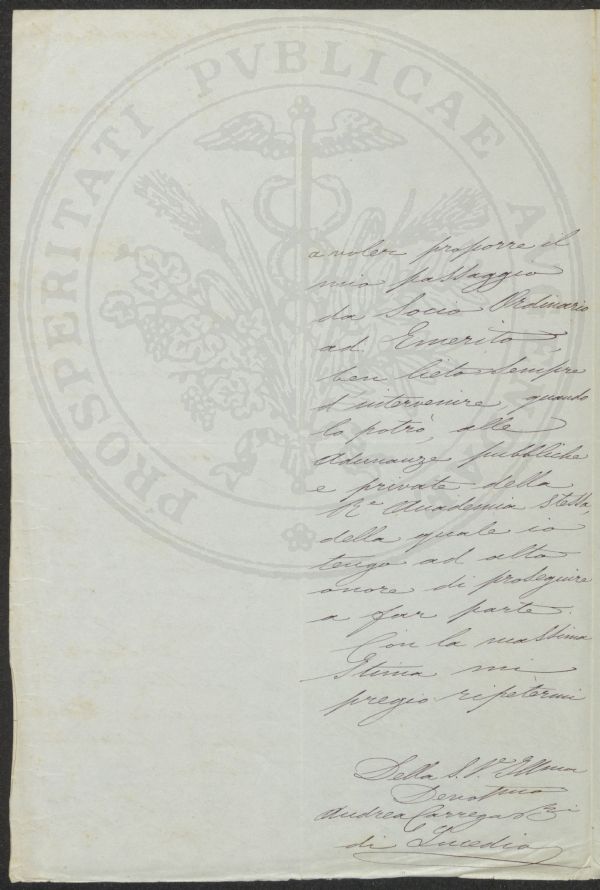 PROSPERITATI PVBLICAE AVGENDAE
a voler proporre il
mio passaggio
da Socio Ordinario
ad Emerito,
ben lieto sempre
d'intervenire, quando
lo potrò, alle
Adunanze pubbliche
e private della
Rª Accademia stessa,
della quale io
tengo ad alto
onore di proseguire
a far parte.
Con la massima
Stima mi
pregio ripetermi
Della S. V. Illma
Devotmo
Andrea Carrega
di Lucedio